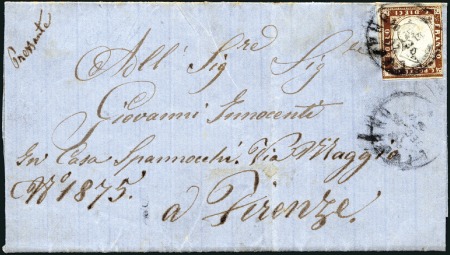 Pressante
All' Sig.re Sig.
Giovanni Innocente
In Casa Spannocchi. Via Maggio
N.o 1875.
a Firenze.